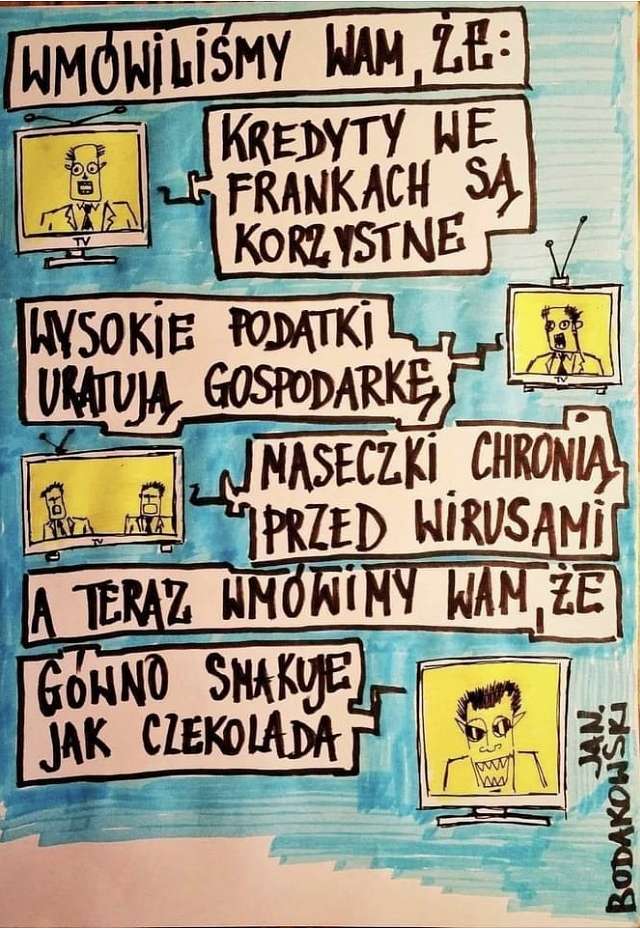 WMÓWILIŚMY WAM, ŻE:
KREDYTY WE
FRANKACH SĄ
KORZYSTNE
TV
WYSOKIE PODATKI
URATUJĄ GOSPODARKĘ
TV
MASECZKI CHRONIĄ
PRZED WIRUSAMI
TV
A TERAZ WMÓWIMY WAM, ŻE
GÓWNO SMAKUJE
JAK CZEKOLADA
JAN.
BODAKOWSKI